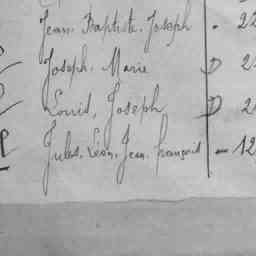 Jean. Baptiste. Joseph . 22
Joseph. Marie D 2
Louis, Joseph D 2
Jules, Léon, Jean. françois - 12